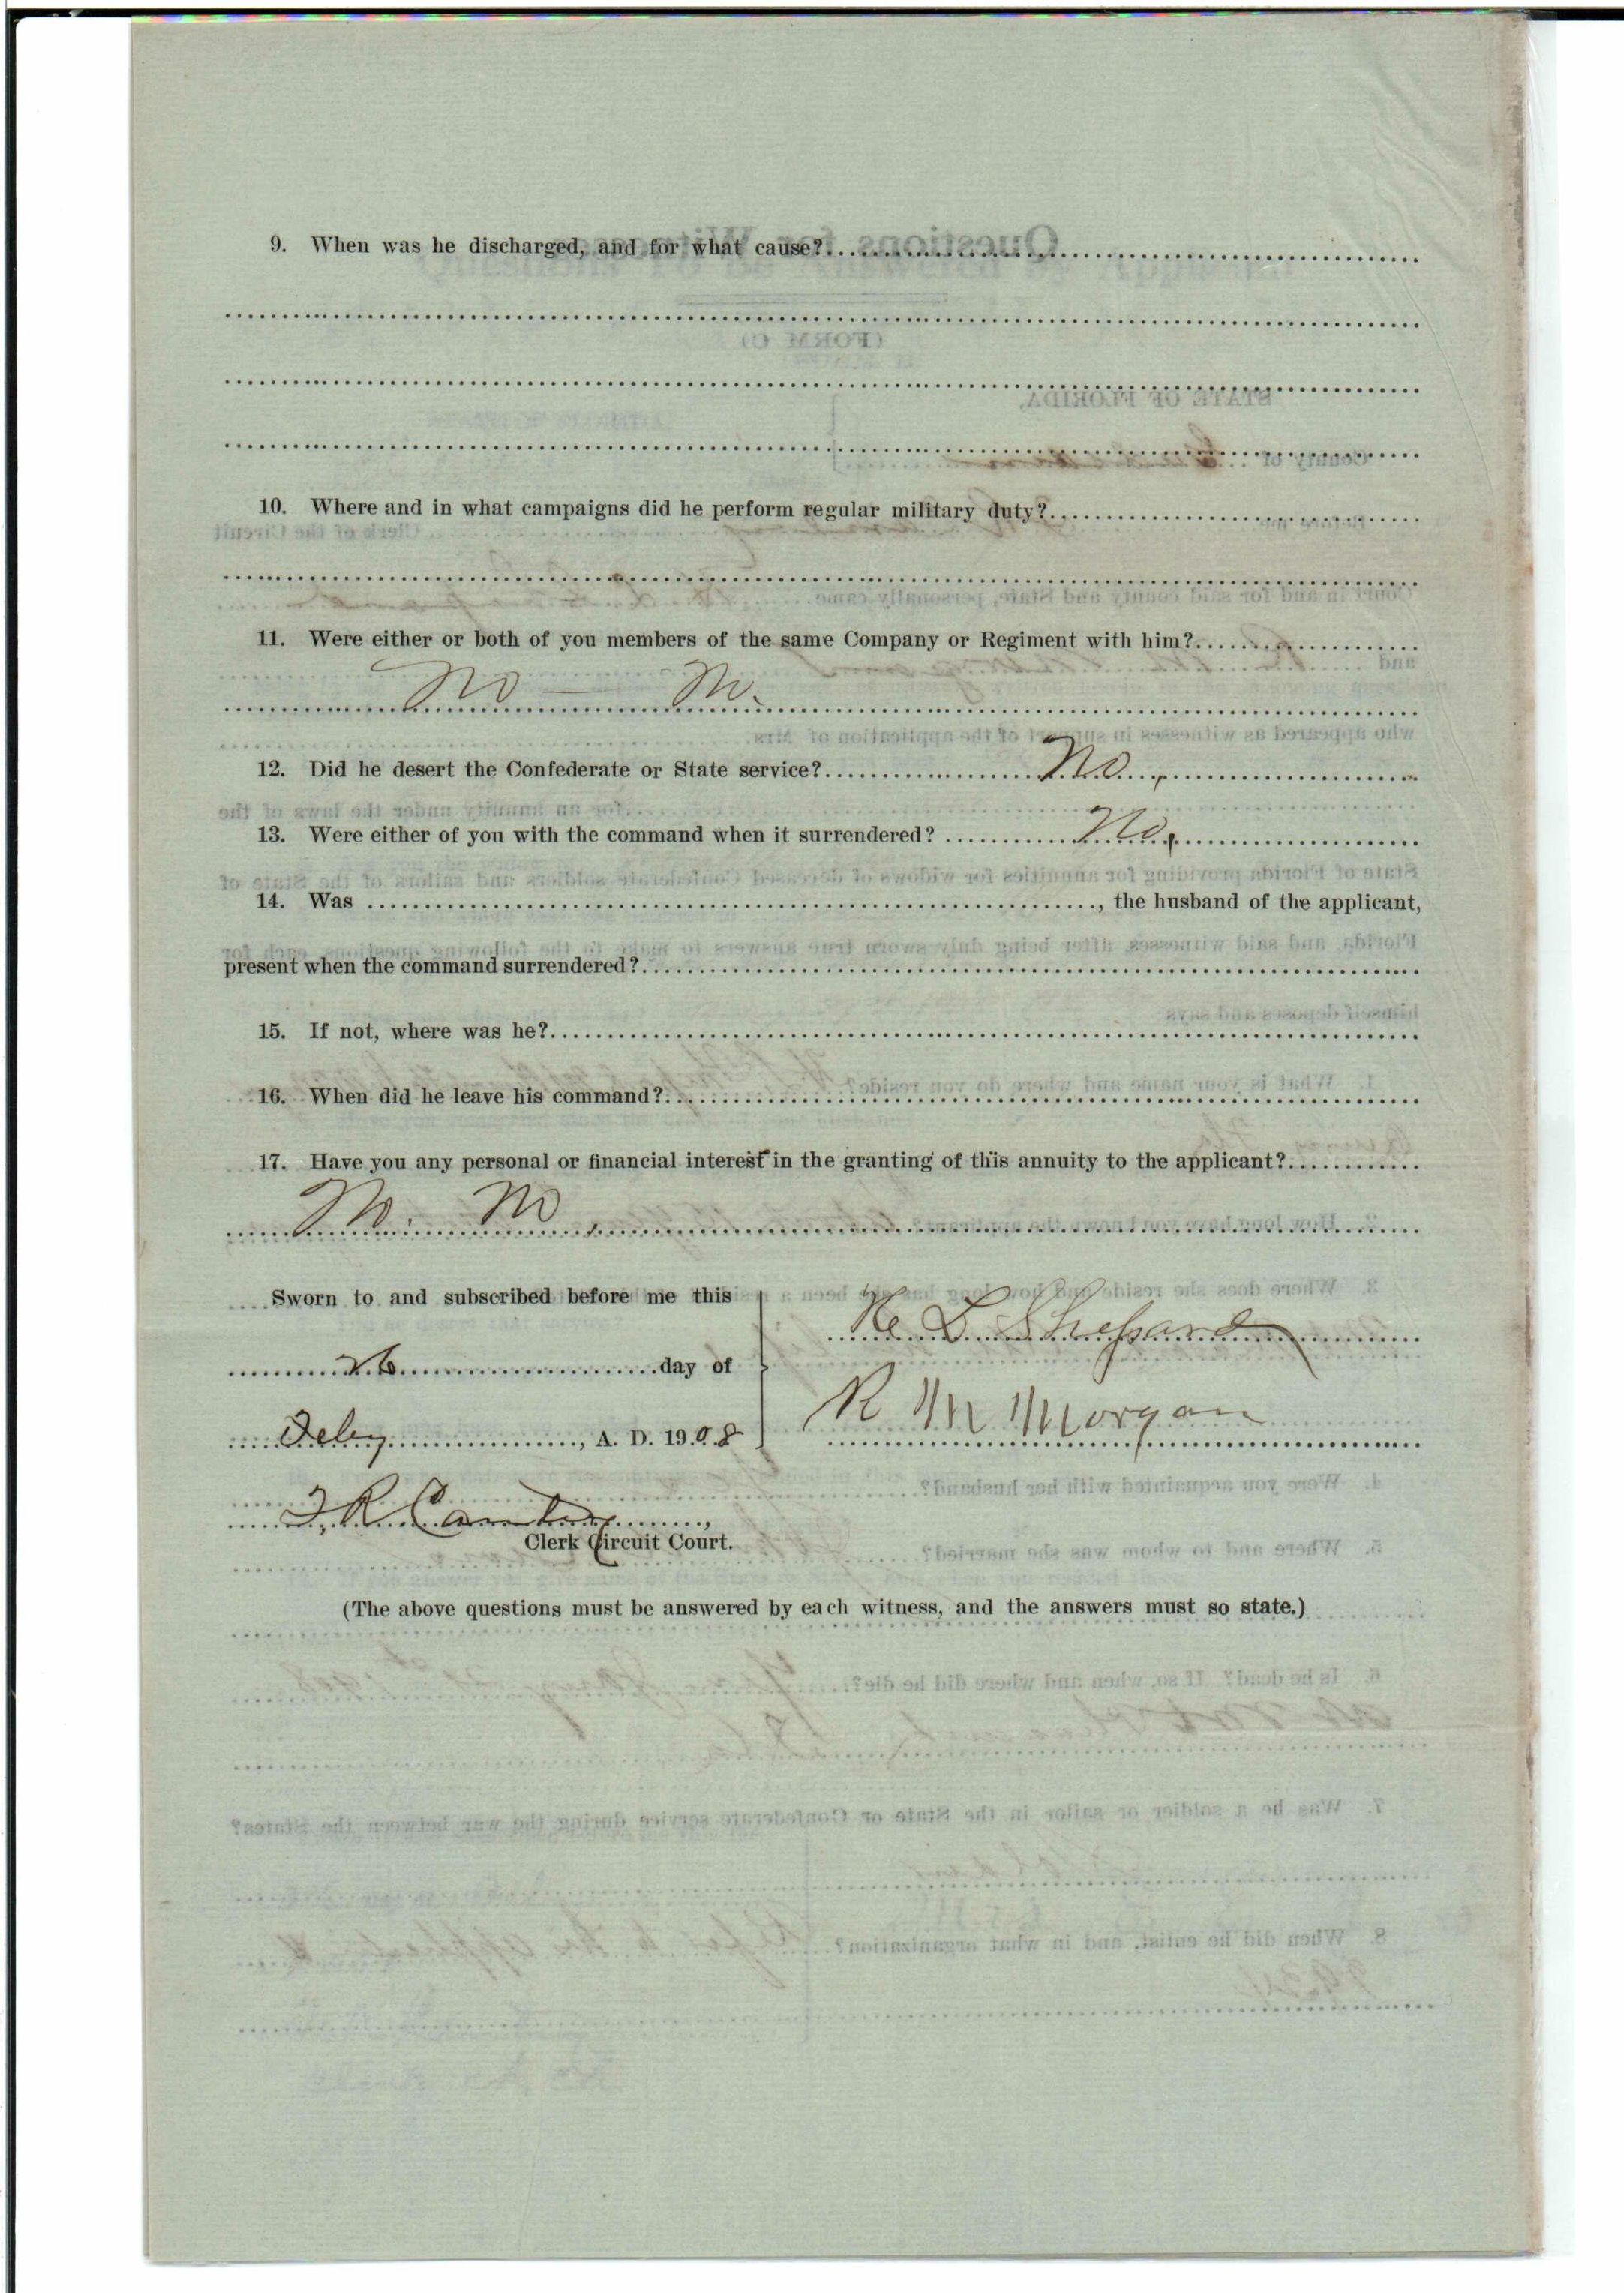 9. When was he discharged, and for what cause?
10. Where and in what campaigns did he perform regular military duty?
11. Were either or both of you members of the same Company or Regiment with him?
No — No.
12. Did he desert the Confederate or State service? No.
13. Were either of you with the command when it surrendered? No.
14. Was ........, the husband of the applicant,
present when the command surrendered?
15. If not, where was he?
16. When did he leave his command?
17. Have you any personal or financial interest in the granting of this annuity to the applicant?
No. No.
Sworn to and subscribed before me this
L Shepard
26 day of
R M Morgan
Feby, A. D. 1908
Clerk Circuit Court.
(The above questions must be answered by each witness, and the answers must so state.)